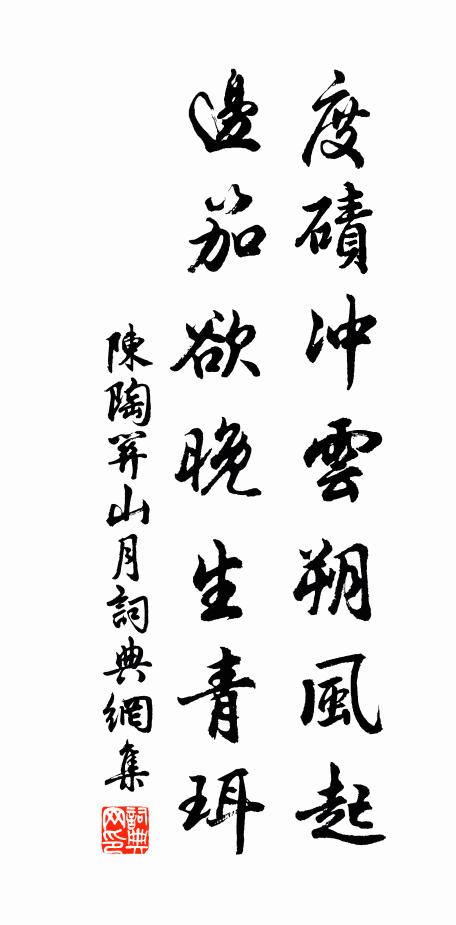 度磧冲雲朔風起
邊笳欲晚生青珥
陳陶關山月詞典網集
詞典
网印